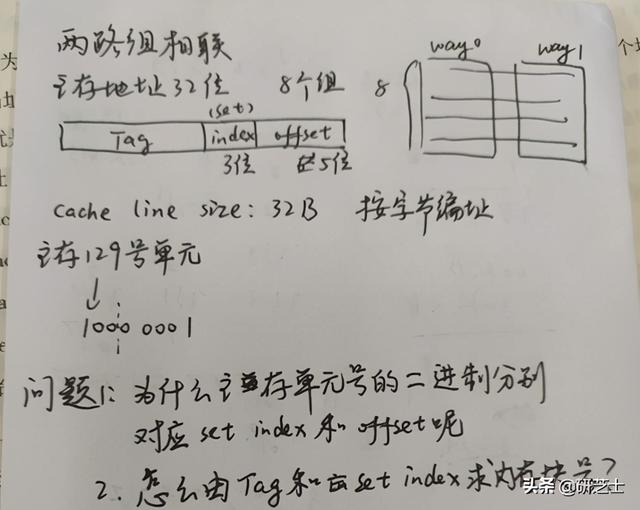 两路组相联
way0 way1
主存地址32位 8个组 8
(set)
Tag index offset
3位 5位
cache line size: 32B 按字节编址
主存129号单元
1000 0001
问题1: 为什么主存单元号的二进制分别
对应 set index 和 offset 呢
2. 怎么由 Tag 和 set index 求内存块号?
头条 @研芝士